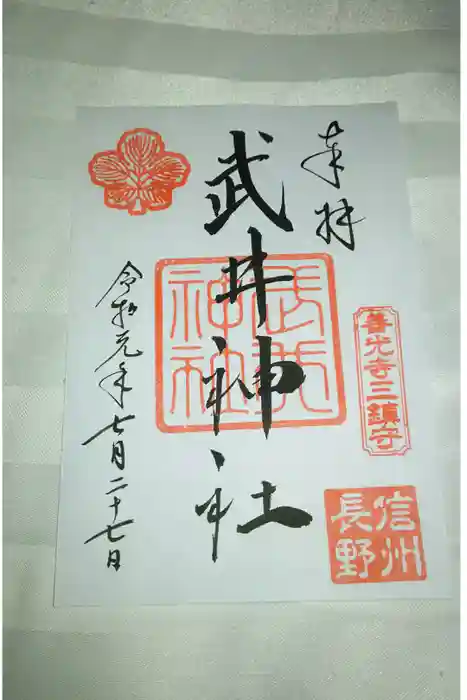 奉拝
善光寺三鎮守
信州
長野
武井神社
武井
神社
令和元年七月二十七日